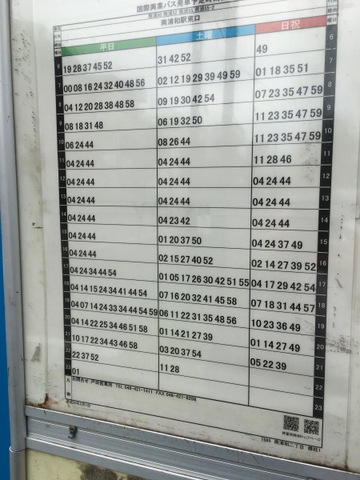 国際興業バス発車予定時刻表
南浦和駅東口
平日 土曜 日祝
6 19 28 37 45 52 31 42 52 49 6
7 00 08 16 24 32 40 48 56 02 12 19 29 39 49 59 01 18 35 51 7
8 04 12 20 28 38 48 58 09 19 30 42 54 07 23 35 47 59 8
9 08 18 31 48 06 19 32 50 11 23 35 47 59 9
10 06 24 44 08 26 44 11 23 35 47 59 10
11 04 24 44 04 24 44 11 28 46 11
12 04 24 44 04 24 44 04 24 44 12
13 04 24 44 04 24 44 04 24 44 13
14 04 24 44 04 23 42 04 24 44 14
15 04 24 44 01 20 37 50 04 24 37 49 15
16 04 24 44 02 15 27 40 52 02 14 27 39 52 16
17 04 24 34 44 54 01 05 17 26 30 42 51 55 04 17 29 42 54 17
18 04 14 15 24 34 41 44 54 07 16 20 32 41 45 58 07 18 31 44 57 18
19 04 07 14 24 33 34 44 54 59 06 11 22 31 35 48 56 10 23 36 49 19
20 04 14 22 25 34 46 51 58 01 14 21 27 39 01 14 27 49 20
21 10 17 22 34 43 46 58 03 20 37 54 05 22 39 21
22 22 37 52 11 28 22
23 01 23
お問合せ 戸田営業所 TEL